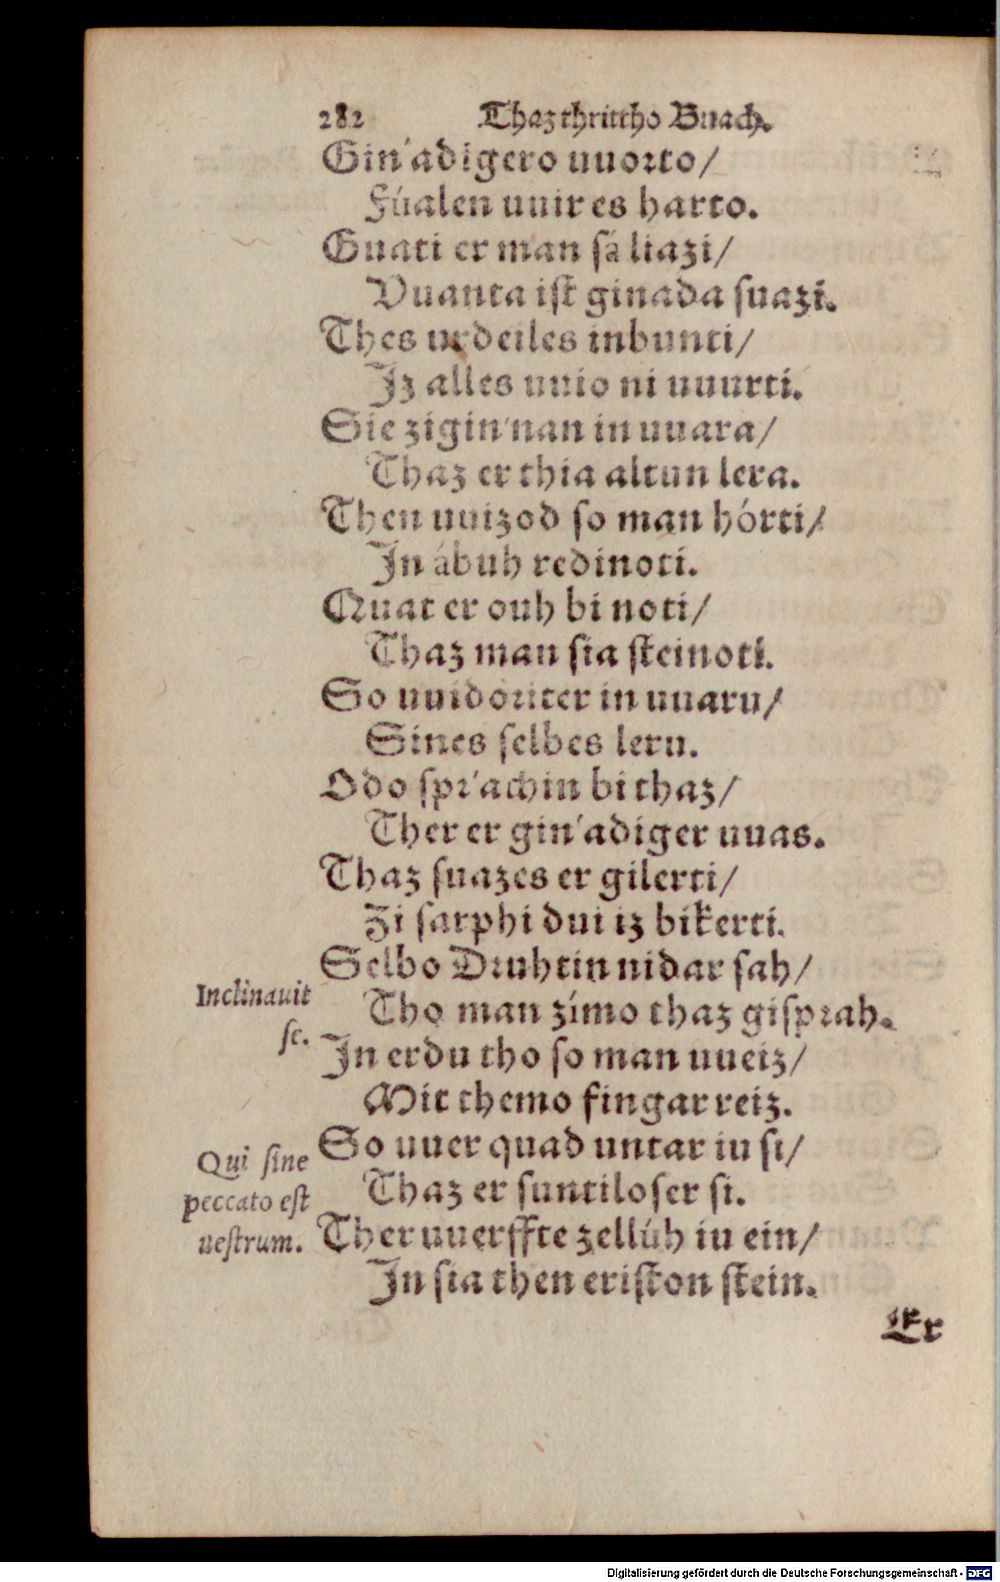 282 Thaz thrittho Buach.
Gin'adigero uuorto/
Fúalen uuir es harto.
Guati er man sâ liazi/
Vuanta ist ginada suazi.
Thes urdeiles inbunti/
Iz alles uuio ni uuurti.
Sie zigin'nan in uuara/
Thaz er thia altun lera.
Then uuizod so man hórti/
In âbuh redinoti.
Quat er ouh bi noti/
Thaz man sia steinoti.
So uuidoriter in uuaru/
Sines selbes leru.
Odo spr'achin bi thaz/
Ther er gin'adiger uuas.
Thaz suazes er gilerti/
Zi sarphi dui iz bikerti.
Selbo Druhtin nidar sah/
Inclinauit se.
Tho man zímo thaz gisprah.
In erdu tho so man uueiz/
Mit themo fingar reiz.
So uuer quad untar iu si/
Qui sine peccato est uestrum.
Thaz er suntiloser si.
Ther uuerffte zellúh iu ein/
In sia then eriston stein.
Er
Digitalisierung gefördert durch die Deutsche Forschungsgemeinschaft - DFG